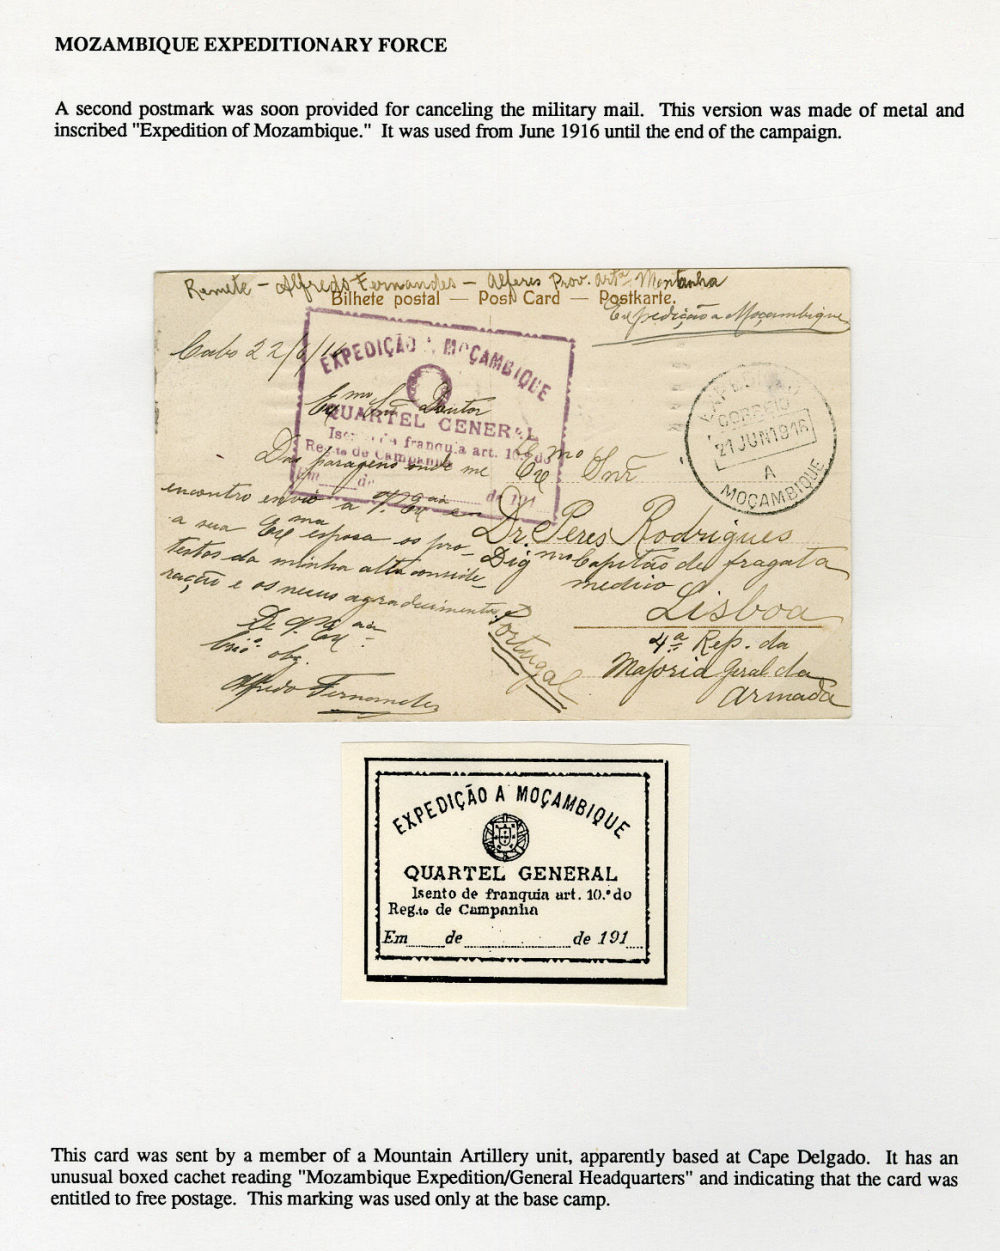 MOZAMBIQUE EXPEDITIONARY FORCE
A second postmark was soon provided for canceling the military mail. This version was made of metal and
inscribed "Expedition of Mozambique." It was used from June 1916 until the end of the campaign.
Remete - Alfredo Fernandes - Alferes Prov. artª Montanha
Bilhete postal — Post Card — Postkarte.
Expedição a Moçambique
Cabo 22/6/16
EXPEDIÇÃO A MOÇAMBIQUE
QUARTEL GENERAL
Isento de franquia art. 10.º do
Reg.to de Campanha
Em de de 191
EXPEDIÇÃO
CORREIO
21 JUN 1916
A
MOÇAMBIQUE
Exmo Snr Doutor
Das paragens onde me
encontro envio a V. Exª e
a sua Exma esposa os pro-
testos da minha alta conside-
ração e os meus agradecimentos
De V. Exª
obg.
Alfredo Fernandes
Exmo Snr
Dr. Peres Rodrigues
Digmo Capitão de fragata
medico
Lisboa
4ª Rep. da
Majoria Geral da
Armada
Portugal
EXPEDIÇÃO A MOÇAMBIQUE
QUARTEL GENERAL
Isento de franquia art. 10.º do
Reg.to de Campanha
Em......de..................de 191...
This card was sent by a member of a Mountain Artillery unit, apparently based at Cape Delgado. It has an
unusual boxed cachet reading "Mozambique Expedition/General Headquarters" and indicating that the card was
entitled to free postage. This marking was used only at the base camp.